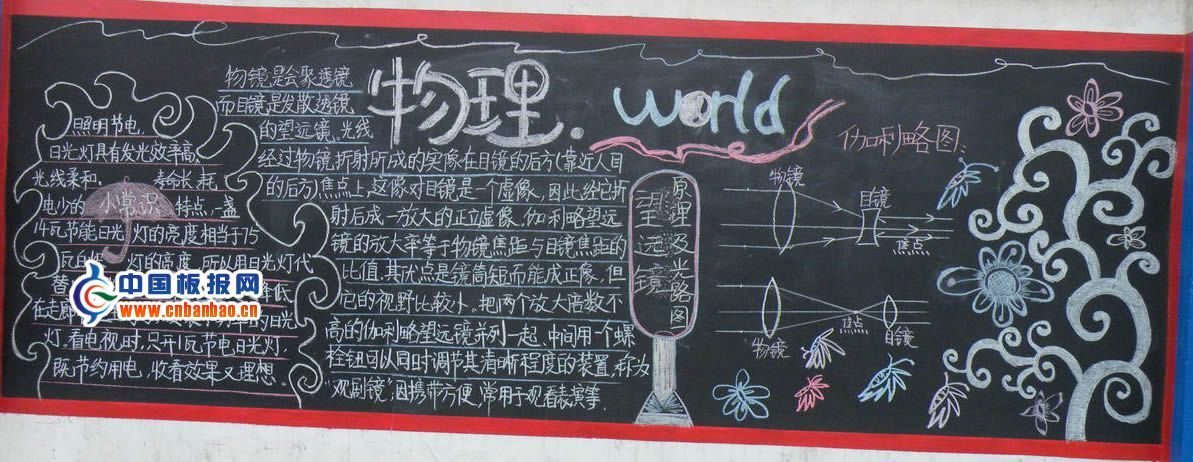 物理 World
物镜是会聚透镜
而目镜是发散透镜
的望远镜、光线
经过物镜折射所成的实像在目镜的后方(靠近人目
的后方)焦点上,这像对目镜是一个虚像,因此经它折
射后成一放大的正立虚像,伽利略望远
镜的放大率等于物镜焦距与目镜焦距的
比值.其优点是镜筒短而能成正像,但
它的视野比较小.把两个放大倍数不
高的伽利略望远镜并列一起、中间用一个螺
栓钮可以同时调节其清晰程度的装置,称为
“观剧镜”;因携带方便,常用于观看表演等.
照明节电.
日光灯具有发光效率高、
光线柔和 寿命长、耗
电少的 特点,一盏
小常识
14瓦节能日光 灯的亮度相当于75
灯的亮度,所以用日光灯代
替
降低.
在走廊
的日光
灯.看电视时,只开1瓦节电日光灯,
既节约用电,收看效果又理想.
中国板报网
www.cnbanbao.cn
望远镜
原理及光路图
伽利略图:
物镜
目镜
焦点
物镜
焦点
目镜